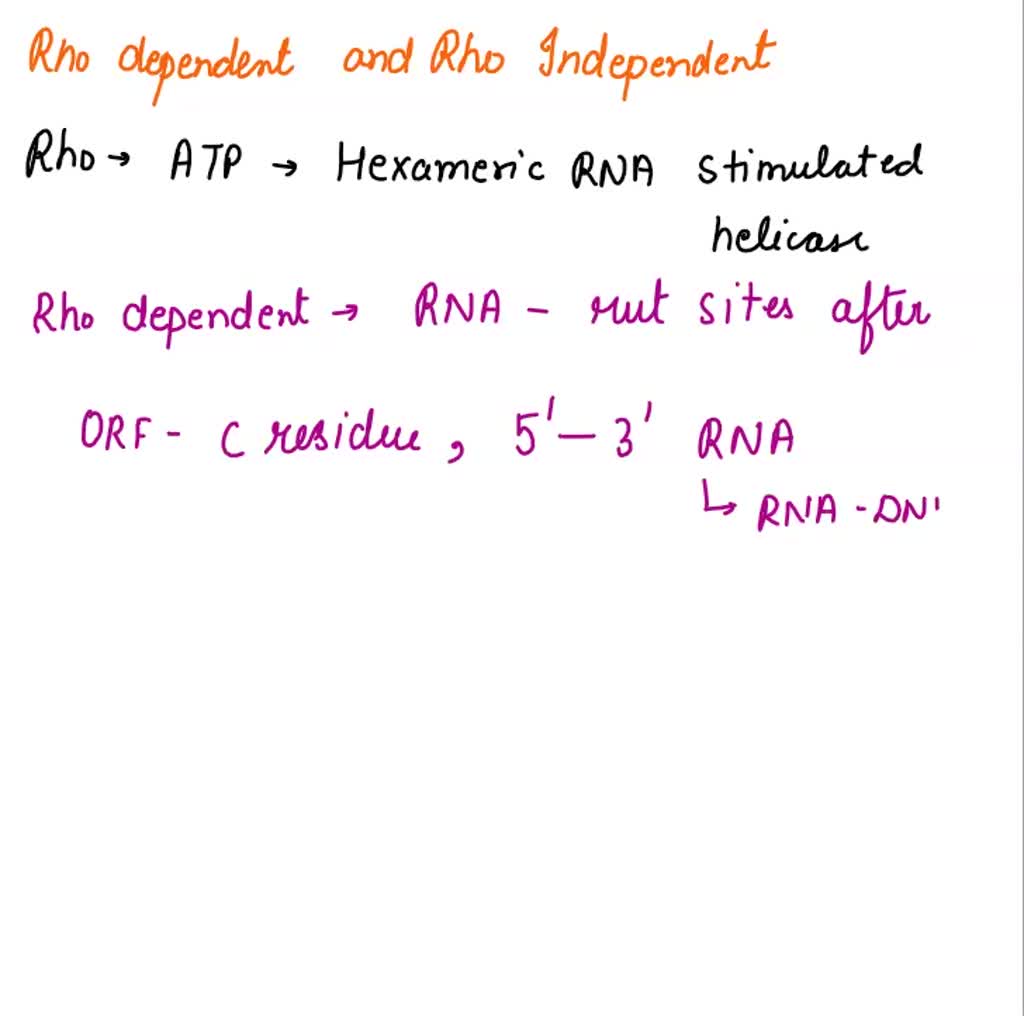 Rho dependent and Rho Independent
Rho → ATP → Hexameric RNA stimulated
helicase
Rho dependent → RNA - rut sites after
ORF - C residue, 5' - 3' RNA
↳ RNA - DN'